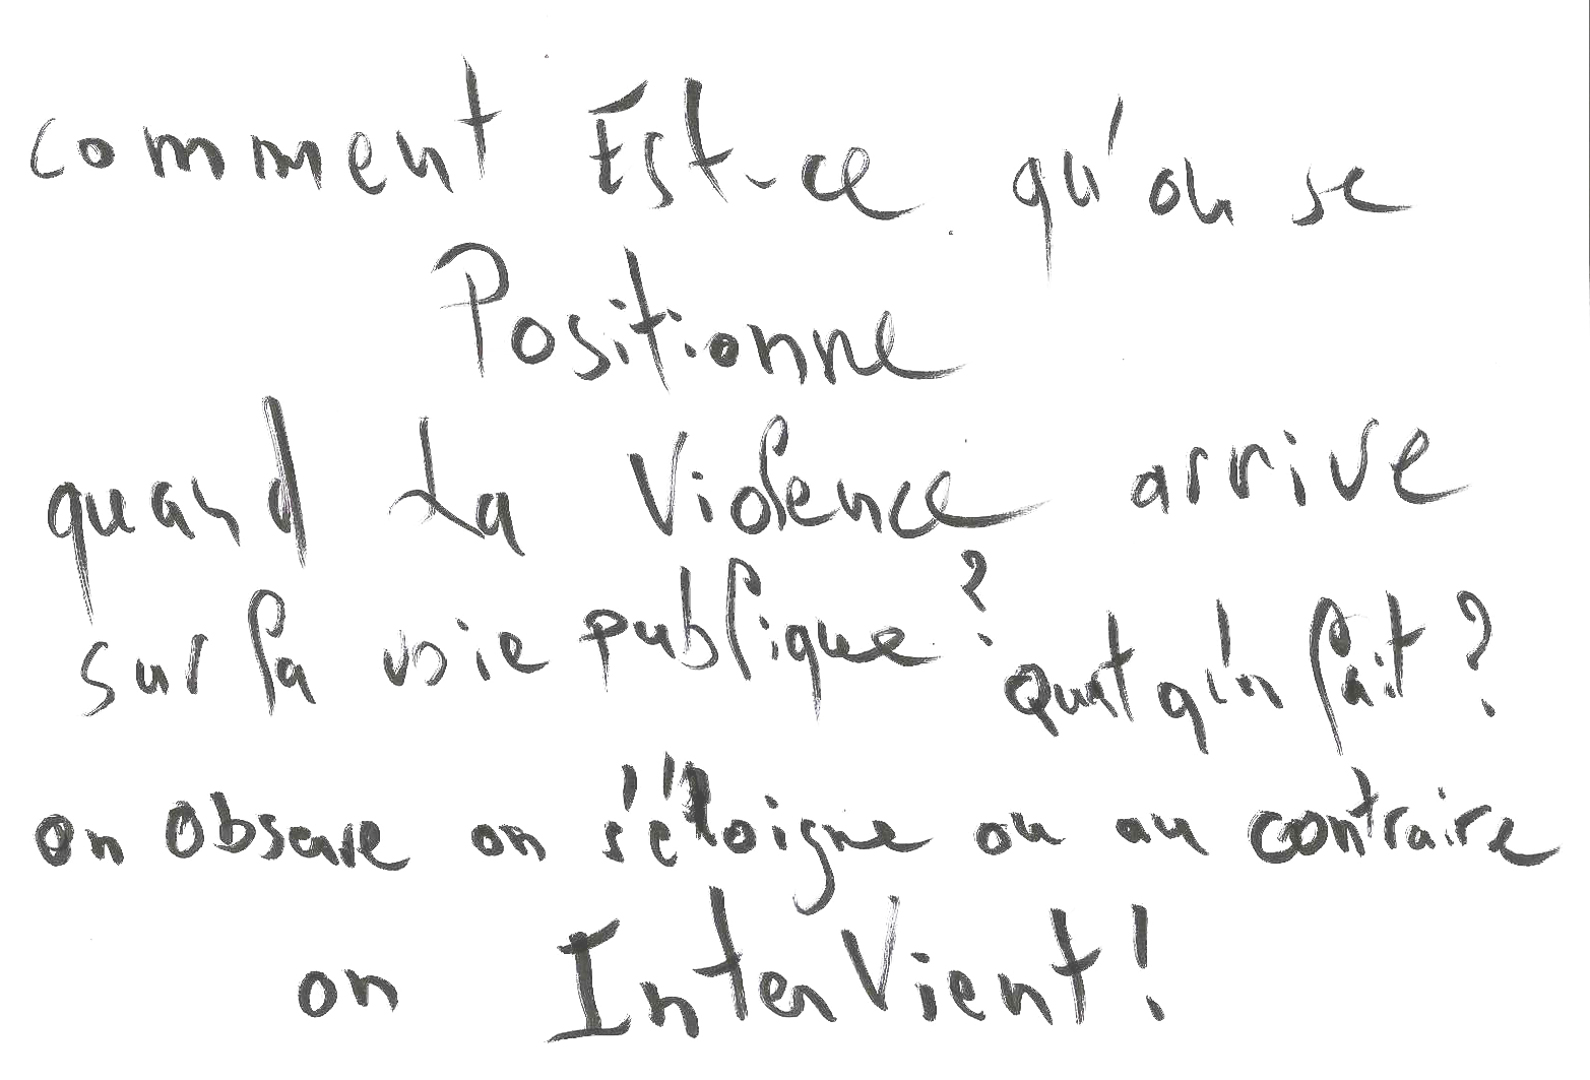 comment Est-ce qu'on se
Positionne
quand La Violence arrive
sur la voie publique ? qu'on fait ?
on observe on s'éloigne ou au contraire
on InterVient !